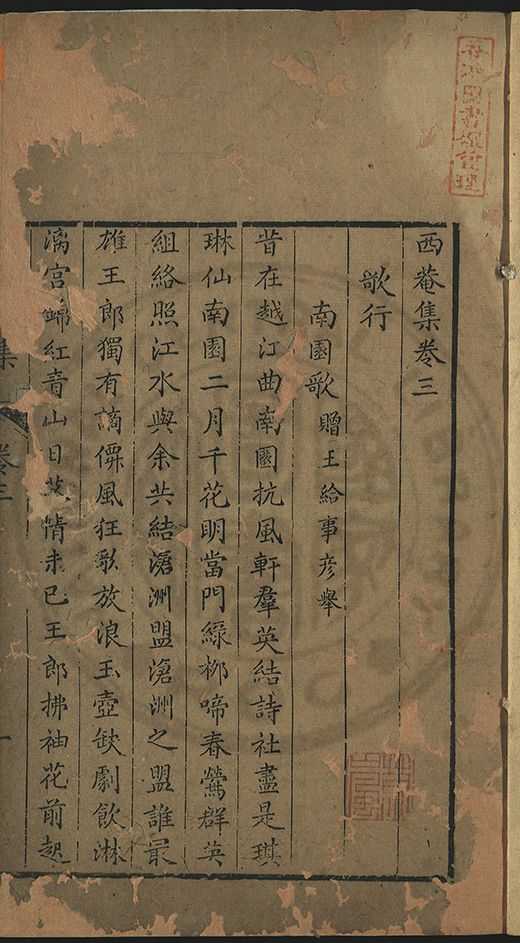 西菴集卷三
歌行
南園歌贈王給事彦舉
昔在越江曲南園抗風軒羣英結詩社盡是琪
琳仙南園二月千花明當門緑桞啼春鶯群英
組絡照江水與余共結滄洲盟滄洲之盟誰最
雄王郎獨有謫僊風狂歌放浪玉壺缺劇飲淋
漓宫錦紅青山日落情未已王郎拂袖花前起
集
卷三
一